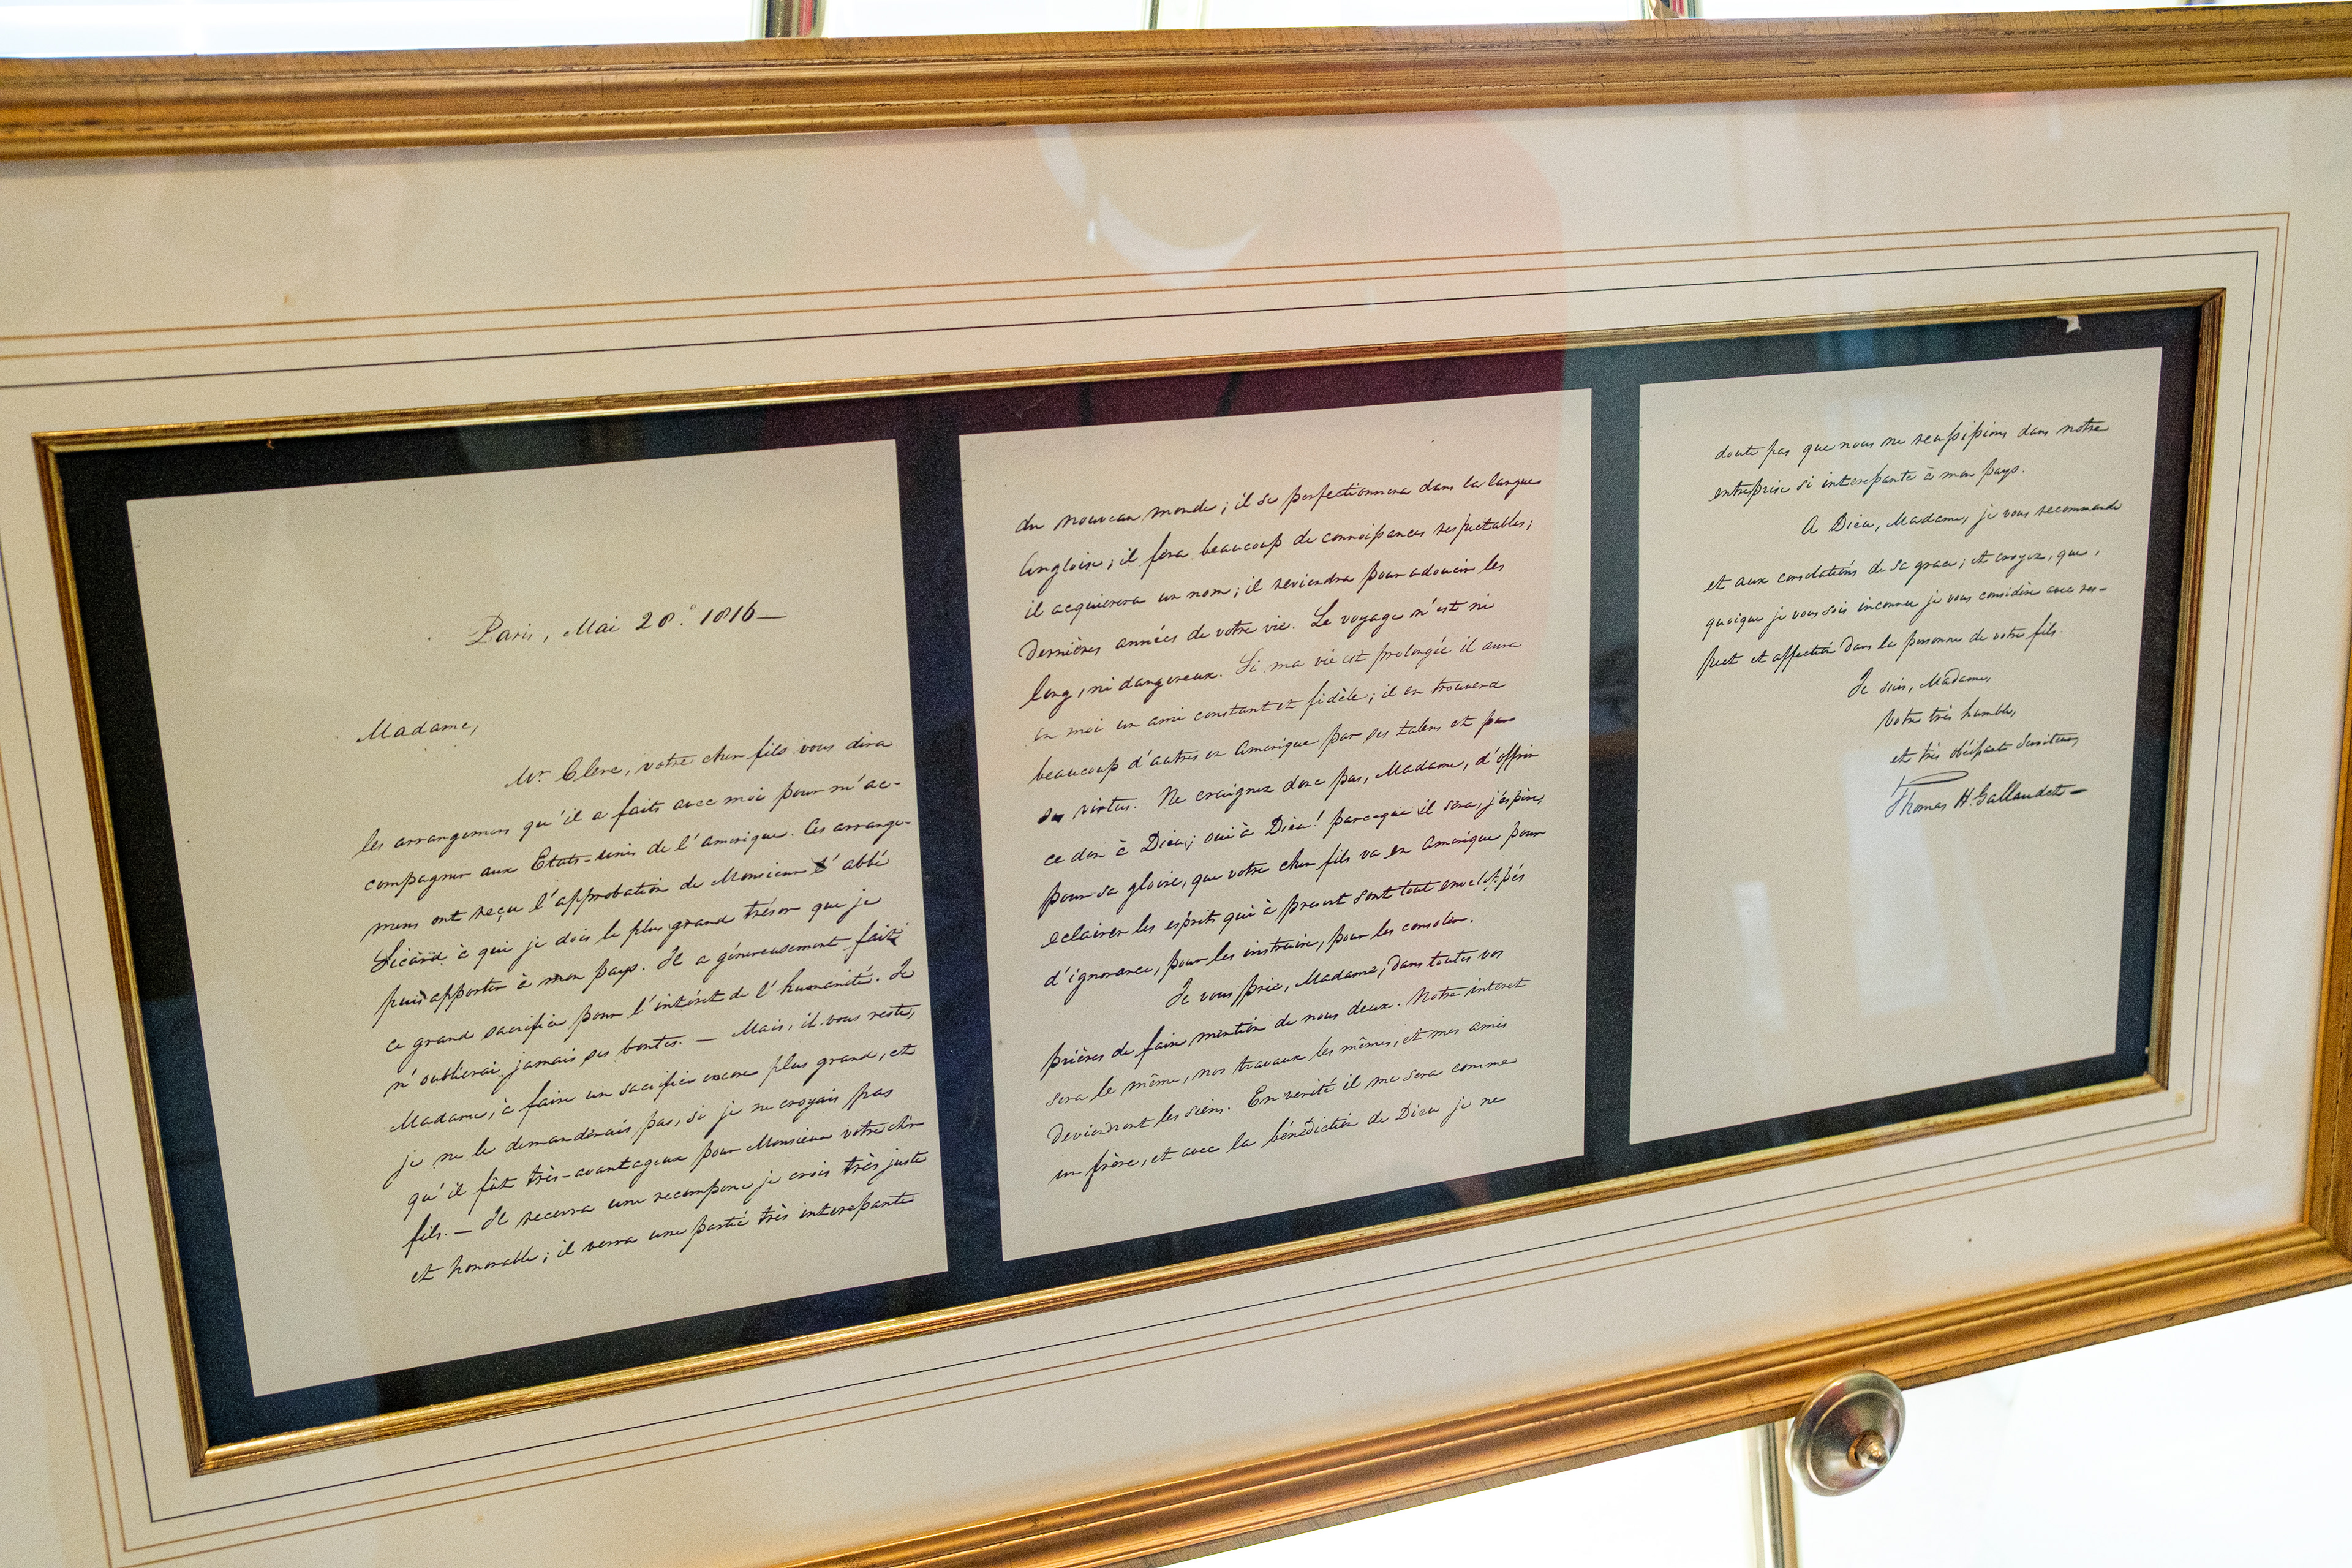 Paris, Mai 28.º 1816—
Madame,
Mr. Clerc, votre cher fils vous dira
les arrangemens qu'il a faits avec moi pour m'ac-
compagner aux Etats-unis de l'amerique. Ces arrange-
mens ont reçu l'approbation de Monsieur l'abbé
Sicard à qui je dois le plus grand trésor que je
puis apporter à mon pays. Il a généreusement fait
ce grand sacrifice pour l'intérêt de l'humanité. Je
n'oublierai jamais ses bontes. — Mais, il vous reste,
Madame, à faire un sacrifice encore plus grand, et
je ne le demanderais pas, si je ne croyais pas
qu'il fût très-avantageux pour Monsieur votre cher
fils. — Il recevra une recompense je crois très juste
et honorable; il verra une partie très interessante
du nouveau monde; il se perfectionnera dans la langue
angloise; il fera beaucoup de connoissances respectables;
il acquierera un nom; il reviendra pour adoucir les
dernières années de votre vie. Le voyage n'est ni
long, ni dangereux. Si ma vie est prolongée il aura
en moi un ami constant et fidèle; il en trouvera
beaucoup d'autres en Amerique par ses talens et par
ses vertus. Ne craignez donc pas, Madame, d'offrir
ce don à Dieu; oui à Dieu! parceque il sera, j'espère,
pour sa gloire, que votre cher fils va en Amerique pour
eclairer les esprits qui à present sont tout enveloppés
d'ignorance, pour les instruire, pour les consoler.
Je vous prie, Madame, dans toutes vos
prières de faire mention de nous deux. Notre interet
sera le même, nos travaux les mêmes, et mes amis
deviendront les siens. En verité il me sera comme
un frère, et avec la bénédiction de Dieu je ne
doute pas que nous ne reussissions dans notre
entreprise si interessante à mon pays.
A Dieu, Madame, je vous recommande
et aux consolations de sa grace; et croyez, que,
quoique je vous sois inconnu je vous considère avec res-
pect et affection dans la personne de votre fils.
Je suis, Madame,
Votre très humble,
et très obéissant serviteur,
Thomas H. Gallaudet—